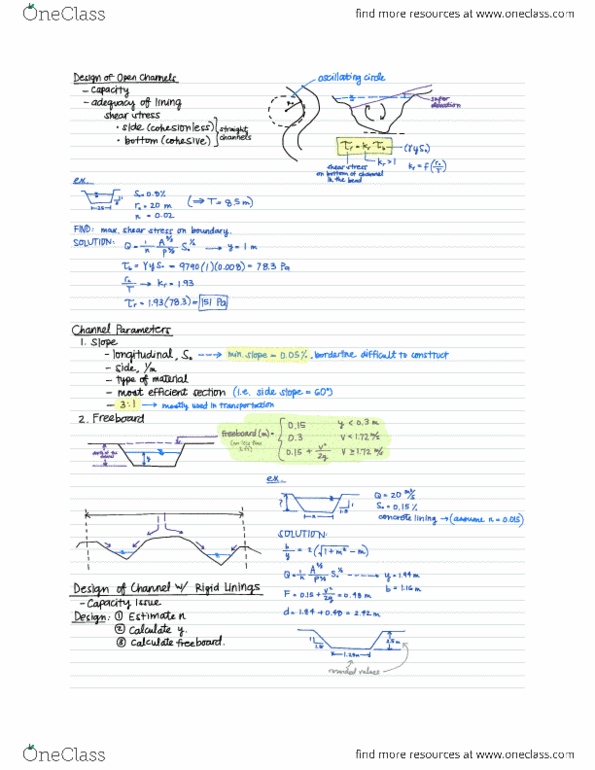 OneClass
find more resources at www.oneclass.com
Design of Open Channels
- Capacity
- adequacy of lining
shear stress
• side (cohesionless)
• bottom (cohesive)
straight channels
oscillating circle
super elevation
τr = kr τb (γyS₀)
kr > 1
shear stress on bottom of channel in the bend
ex.
S₀ = 0.8%
r₀ = 20 m
n = 0.02
(⇒ T = 8.5m)
FIND: max. shear stress on boundary.
SOLUTION:
→ y = 1 m
= 9790(1)(0.008) = 78.3 Pa
→ kr = 1.93
τr = 1.93(78.3) = 151 Pa
Channel Parameters
1. Slope
- longitudinal, S₀ ---→ min. slope = 0.05%, borderline difficult to construct
- side, 1/m
- type of material
- most efficient section (i.e. side slope = 60°)
- 3:1 → mostly used in transportation
2. Freeboard
freeboard (m) =
0.15 y < 0.3 m
0.3 V < 1.72 m/s
0.15 + V²/2g V ≥ 1.72 m/s
ex.
Q = 20 m³/s
S₀ = 0.15%
concrete lining → (assume n = 0.015)
SOLUTION:
b/y = 2(√1+m² - m)
b = 1.16 m
F = 0.15 + V²/2g = 0.48 m
Design of Channel w/ Rigid Linings
- Capacity Issue
Design: ① Estimate n
② Calculate y.
③ Calculate freeboard.
rounded values
OneClass
find more resources at www.oneclass.com